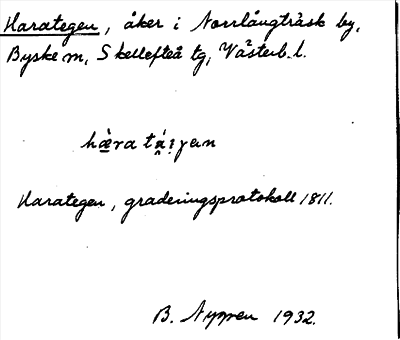 Harategen, åker i Norrlångträsk by,
Byske m, Skellefteå tg, Västerb. l.
Harategen, graderingsprotokoll 1811.
B. Nygren 1932.